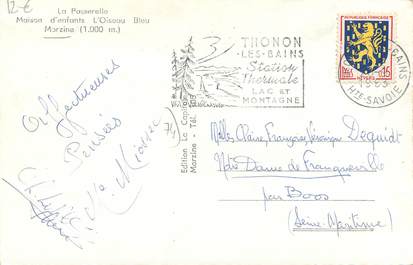 12€
La Passerelle
Maison d'enfants L'Oiseau Bleu
Morzine (1.000 m.)
Affectueuses
Pensées
74
Edition La
Morzine - Tél.
THONON
-LES-BAINS
Station
Thermale
LAC ET
MONTAGNE
REPUBLIQUE FRANÇAISE
0,15
NEVERS
BAINS
HTE-SAVOIE
Melles Claire, Françoise, Véronique Dequidt
Notre Dame de Franqueville
par Boos
(Seine-Maritime)